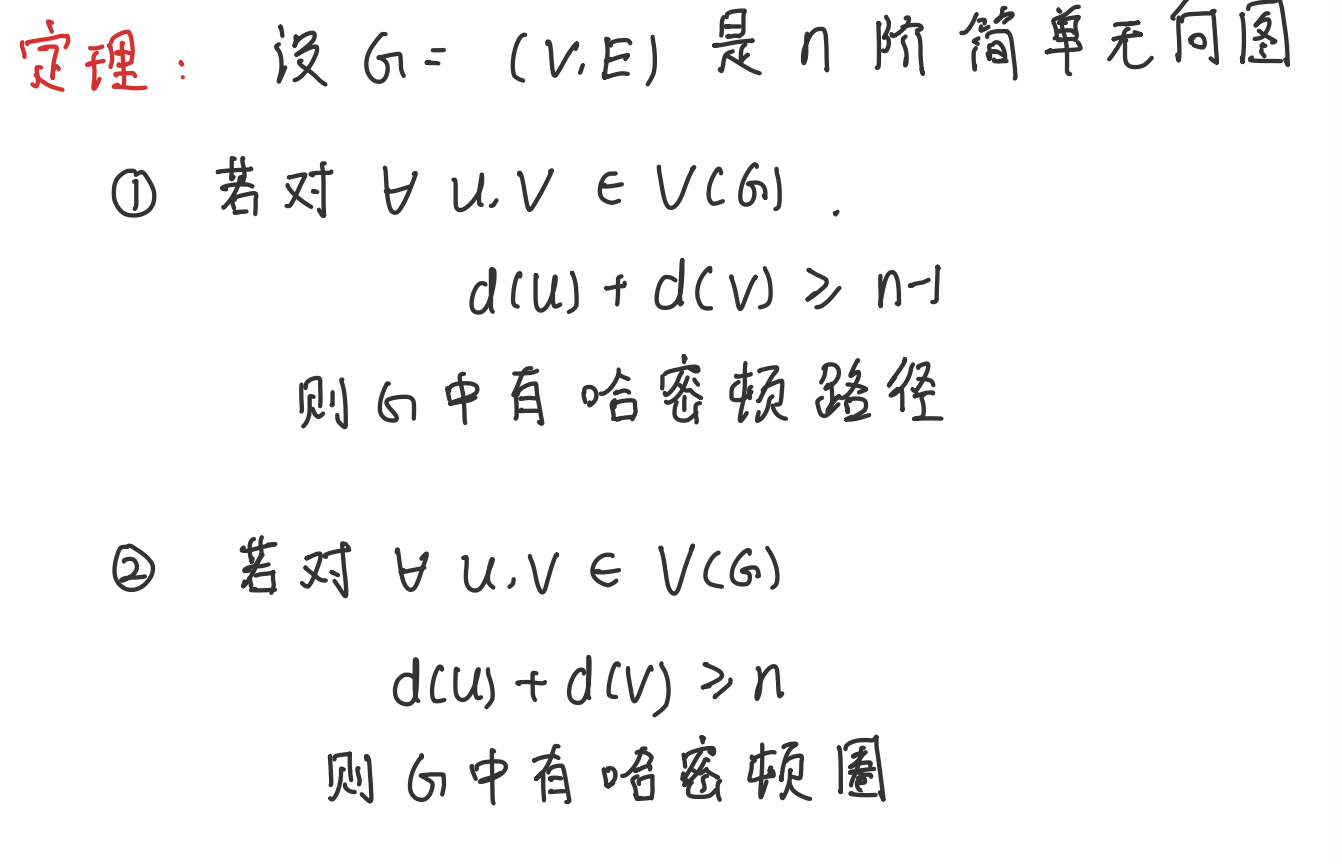 定理: 设 G= (V,E) 是 n 阶简单无向图
① 若对 ∀ u,v ∈ V(G) .
d(u) + d(v) ≥ n-1
则 G 中有哈密顿路径
② 若对 ∀ u,v ∈ V(G)
d(u) + d(v) ≥ n
则 G 中有哈密顿圈